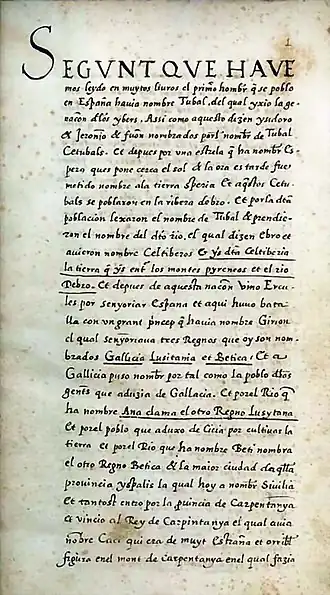 1
SEGUNT QUE HAUE
mos leydo en muytos liuros el primo hombr q̃ se poblo
en España hauia nombre Tubal, del qual yxio la ge-
nacon dlos ybers. Assi como aquesto dizen ysidoro
& Jeronjo & fuõn nombrados porl nombr de Tubal
Cetubals. Et depues por una estrela q̃ ha nombr Es-
pero ques pone cerca el sol & la ora es tarde fue
metido nombre ala tierra speria Et aq̃stos Cetu-
bals se poblaron en la ribera debro. Et por la dta
poblacion lexaron el nombre de Tubal & prendie-
ron el nombre del dto rio, el qual dizen Ebro et
auieron nombre Celtiberos & ys dta Celtiberia
la tierra q̃ ys entre los montes pyreneos et el rio
Debro. Et depues de aquesta nacon vino Ercu-
les por senyoriar España et aqui huuo bata
lla con un grant pncep q̃ hauia nombre Girion
el qual senyoriaua tres Regnos que oy son nom-
brados Gallicia Lusitania et Betica. Et a
Gallicia puso nombr por tal como la poblo dlas
gentes que aduzia de Gallacia. Et por el Rio q̃
ha nombre Ana clama el otro Regno Lusytana
Et por el poblo que aduxo de Cicia por cultiuar la
tierra Et por el Rio que ha nombre Beti nombra
el otro Regno Betica & la maior ciudad daq̃lla
prouincia yspalis la qual hoy a nombr Siuilia
Et tantost entro por la puincia de Carpentanya
et vincio al Rey de Carpintanya el qual auia
nombre Caci qui era de muyt estraña et orribl
figura en el mont de carpentanya en el qual fazia